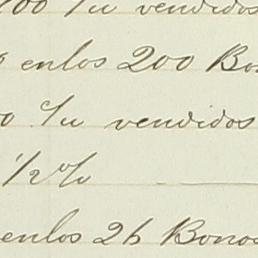 00 c/u vendidos
enlos 200 Bo
0 c/u vendidos
1/2 %
enlos 26 Bonos